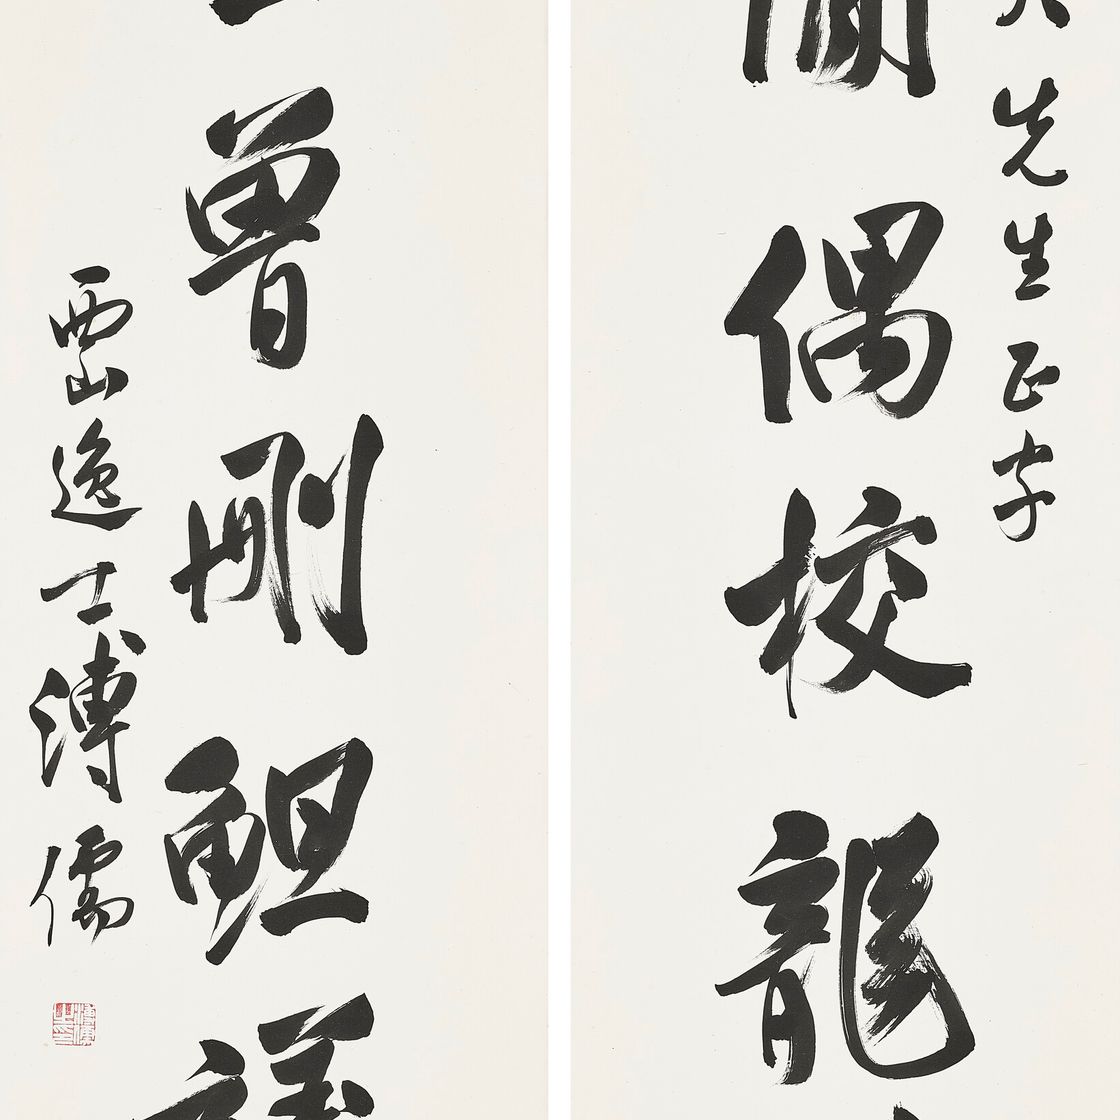 先生正字
偶校龍
曾刪䱇
西山逸士溥儒